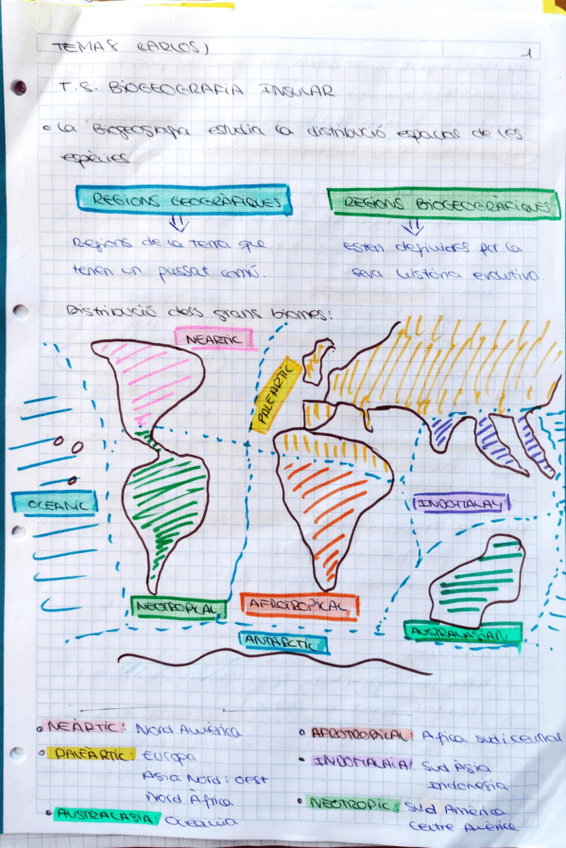 TEMA 8 CARLOS)
1
T.8. BIOGEOGRAFIA INSULAR
• La Biogeografia estudia la distribució espacial de les
espècies
REGIONS GEOGRÀFIQUES
REGIONS BIOGEOGRÀFIQUES
Regions de la Terra que
tenen un passat comú.
esten definides per la
seva història evolutiva.
Distribució dels grans biomes:
NEÀRTIC
PALEÀRTIC
OCEANIC
INDOMALAY
NEOTROPICAL
AFROTROPICAL
AUSTRALASIAN
ANTARCTIC
• NEÀRTIC: Nord Amèrica
• PALEÀRTIC: Europa
Asia Nord i oest
Nord Àfrica
• AUSTRALASIA: Oceania
• AFROTROPICAL: Africa sud i central
• INDOMALAIA: Sud Àsia
Indonesia
• NEOTROPIC: Sud Amèrica
Centre Amèrica